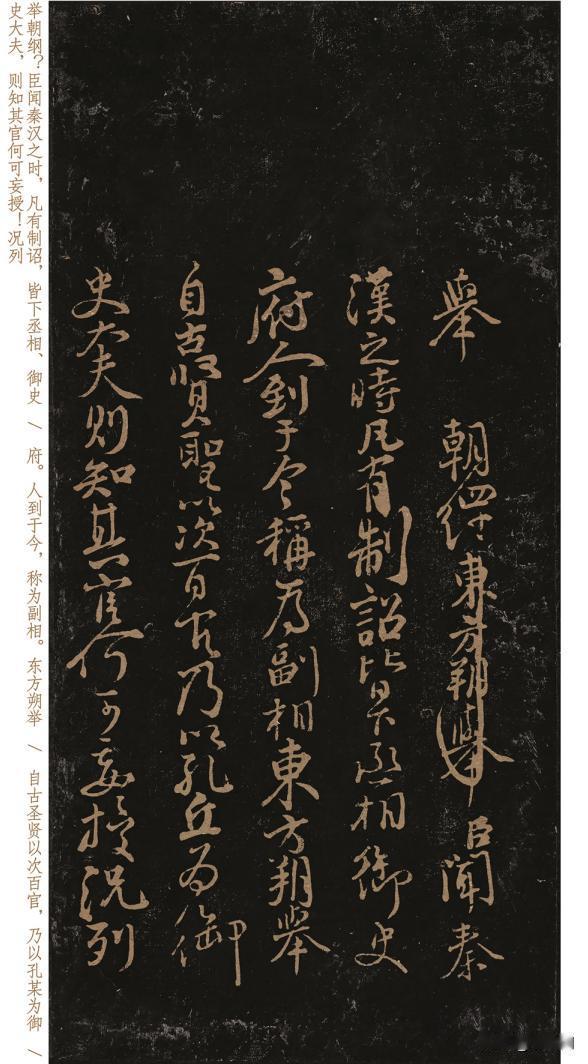 舉 朝綱東方朔舉臣聞秦
漢之時凡有制詔皆下丞相御史
府人到于今稱為副相東方朔舉
自古賢聖以次百官乃以孔丘為御
史大夫則知其官何可妄授況列
举朝纲？臣闻秦汉之时，凡有制诏，皆下丞相、御史 / 府。人到于今，称为副相。东方朔举 / 自古圣贤以次百官，乃以孔某为御 /
史大夫，则知其官何可妄授！况列